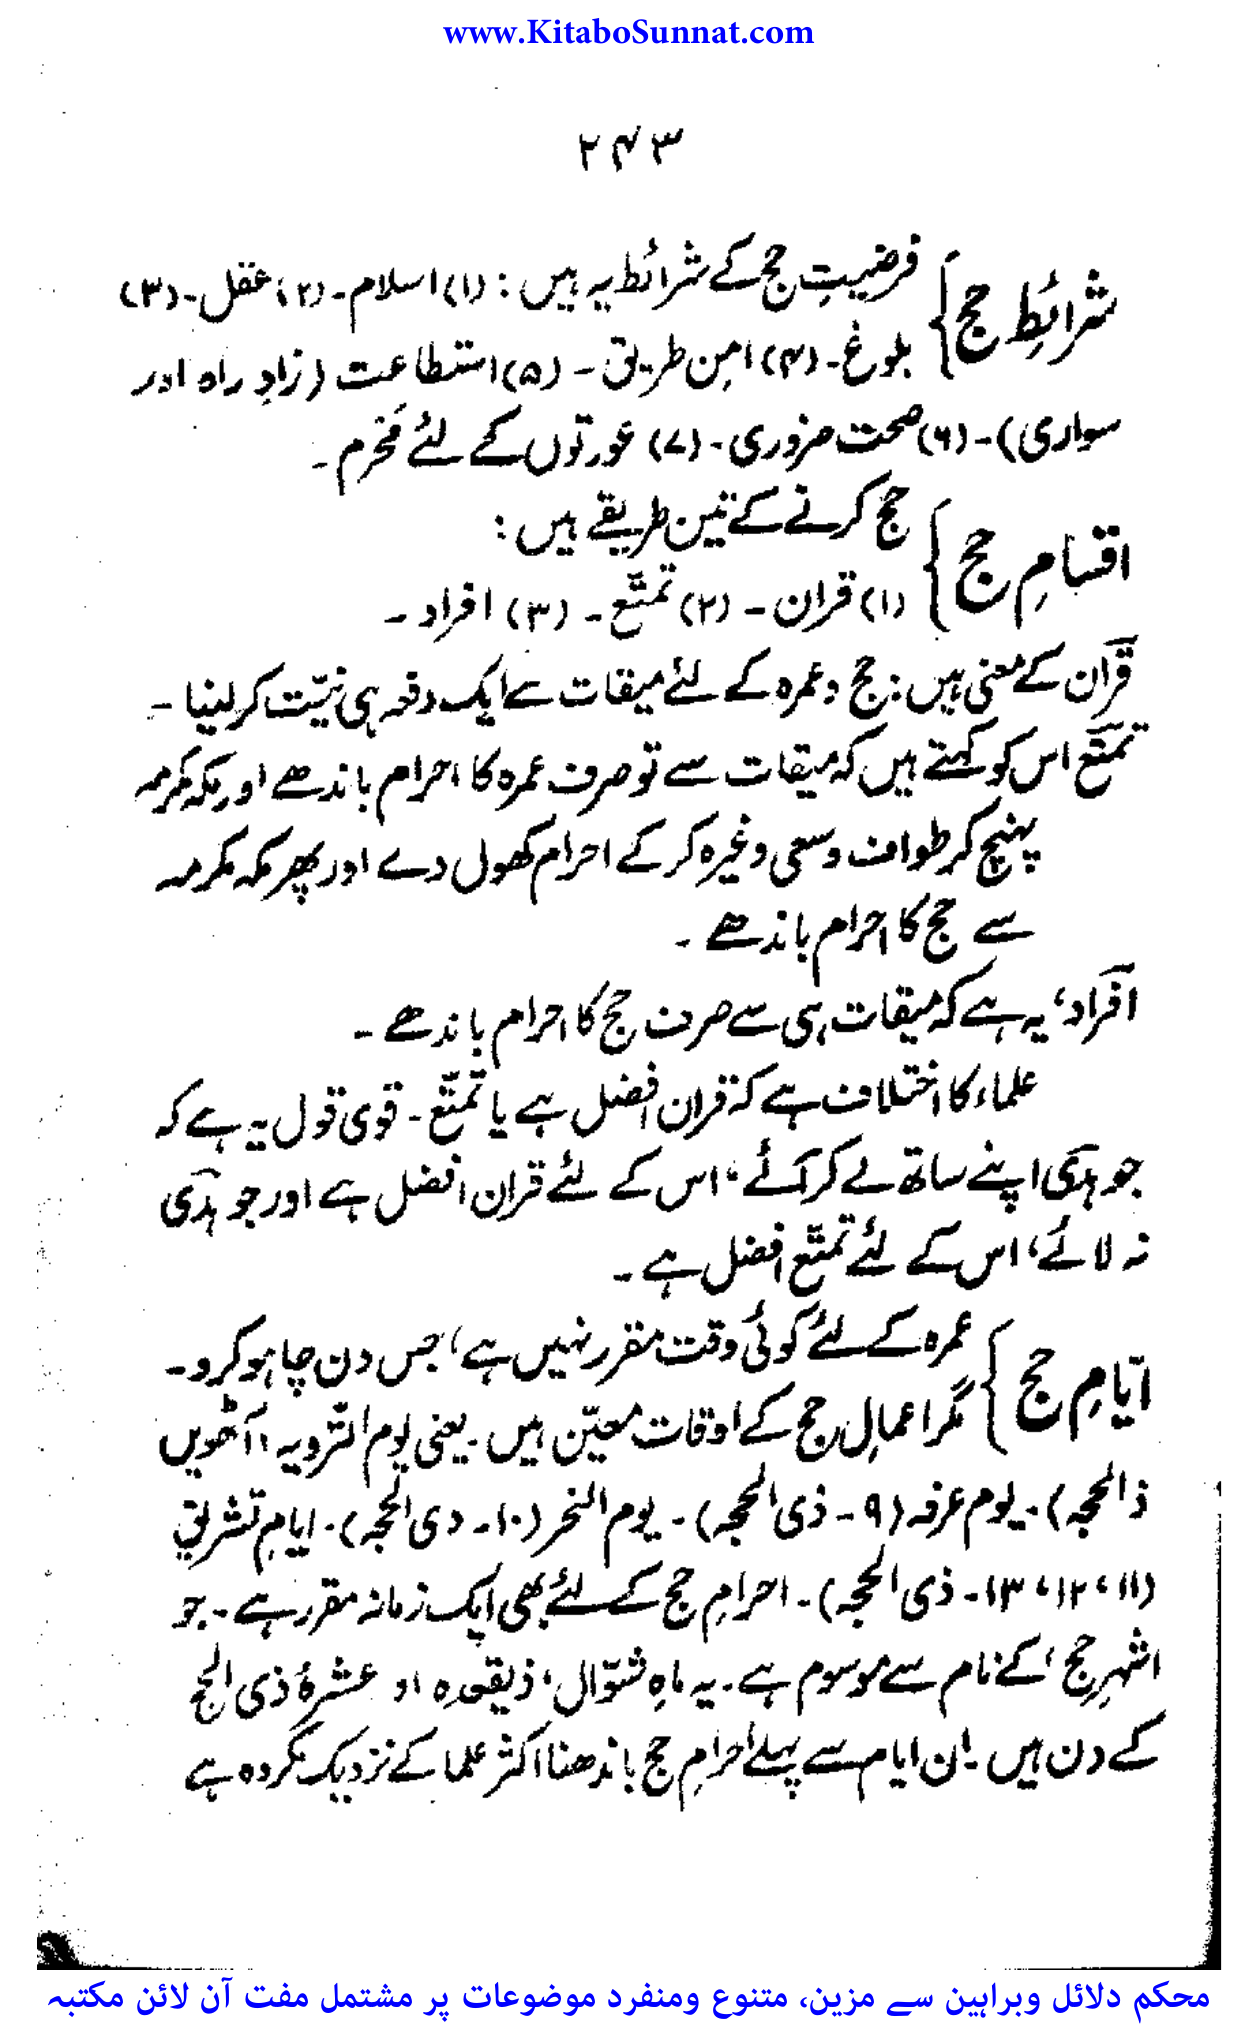 www.KitaboSunnat.com
۲۴۳
شرائطِ حج } فرضیتِ حج کے شرائط یہ ہیں : (۱) اسلام ۔ (۲) عقل ۔ (۳)
بلوغ ۔ (۴) امن طریق ۔ (۵) استطاعت (زادِ راہ اور
سواری) ۔ (۶) صحت ضروری ۔ (۷) عورتوں کے لئے مَحْرم ۔
اقسامِ حج } حج کرنے کے تین طریقے ہیں :
(۱) قران ۔ (۲) تمتّع ۔ (۳) افراد ۔
قران کے معنی ہیں : حج و عمرہ کے لئے میقات سے ایک دفعہ ہی نیّت کر لینا ۔
تمتع اس کو کہتے ہیں کہ میقات سے تو صرف عمرہ کا احرام باندھے اور مکہ مکرمہ
پہنچ کر طواف و سعی وغیرہ کر کے احرام کھول دے اور پھر مکہ مکرمہ
سے حج کا احرام باندھے ۔
افراد، یہ ہے کہ میقات ہی سے صرف حج کا احرام باندھے ۔
علماء کا اختلاف ہے کہ قران افضل ہے یا تمتّع ۔ قوی قول یہ ہے کہ
جو ہدی اپنے ساتھ لے کر آئے، اس کے لئے قران افضل ہے اور جو ہدی
نہ لائے، اس کے لئے تمتّع افضل ہے ۔
ایّامِ حج } عمرہ کے لئے کوئی وقت مقرر نہیں ہے، جس دن چاہو کرو ۔
مگر اعمالِ حج کے اوقات معیّن ہیں ۔ یعنی یوم الترویہ (آٹھویں
ذالحجہ) ۔ یوم عرفہ (۹ ۔ ذی الحجہ) ۔ یوم النحر (۱۰ ۔ ذی الحجہ) ۔ ایامِ تشریق
(۱۱، ۱۲، ۱۳ ۔ ذی الحجہ) ۔ احرامِ حج کے لئے بھی ایک زمانہ مقرر ہے ۔ جو
اشہرِ حج' کے نام سے موسوم ہے ۔ یہ ماہِ شوّال، ذیقعدہ او عشرۂ ذی الحج
کے دن ہیں ۔ ان ایام سے پہلے احرامِ حج باندھنا اکثر علما کے نزدیک مکروہ ہے
محکم دلائل وبراہین سے مزین، متنوع ومنفرد موضوعات پر مشتمل مفت آن لائن مکتبہ